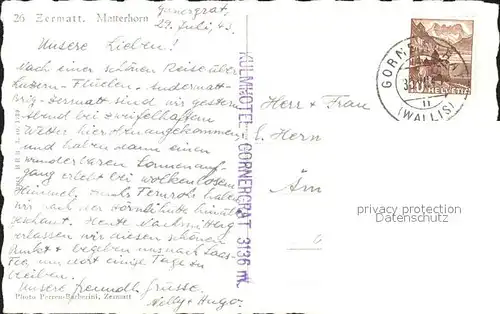 26 Zermatt. Matterhorn
Gornergrat,
29. Juli, 43.
Unsere Lieben!
Nach einer schönen Reise über
Luzern - Flüelen - Andermatt -
Brig - Zermatt sind wir gestern
Abend bei zweifelhaftem
Wetter hier oben angekommen,
und haben dann einen
wunderbaren Sonnenauf-
gang erlebt bei wolkenlosem
Himmel, durchs Fernrohr haben
wir nach der Hörnlihütte
geschaut. Heute Nachmittag
verlassen wir diesen schönen
Punkt & begeben uns nach Saas-
Fee, um dort einige Tage zu
bleiben.
Unsere freundl. Grüsse,
Nelly & Hugo.
Photo Perren-Barberini, Zermatt
KULMHOTEL GORNERGRAT 3136 m.
HELVETIA
GORNERGRAT
(WALLIS)
Herr & Frau
E. Hern
Am
privacy protection
Datenschutz